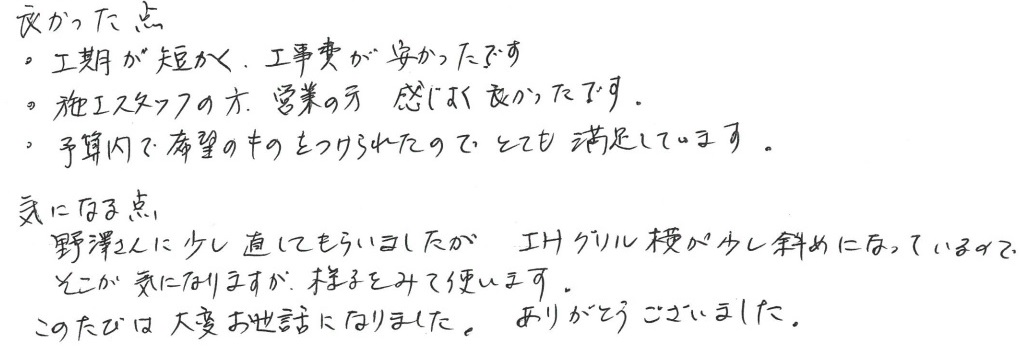 良かった点
・工期が短かく、工事費が安かったです
・施工スタッフの方、営業の方 感じよく良かったです。
・予算内で希望のものをつけられたので とても満足しています。
気になる点
野澤さんに少し直してもらいましたが IHグリル横が少し斜めになっているので、
そこが気になりますが、様子をみて使います。
このたびは大変お世話になりました。 ありがとうございました。